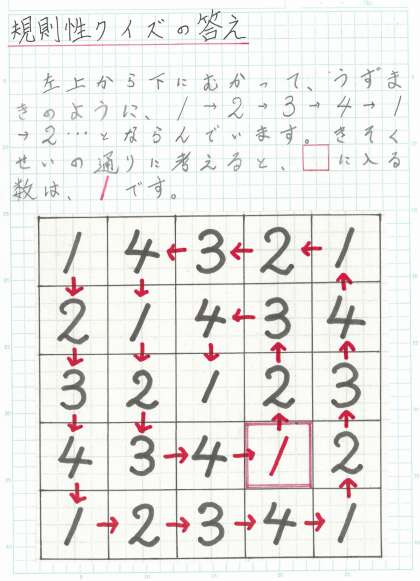 規則性クイズの答え
左上から下にむかって、うずま
きのように、1→2→3→4→1
→2…とならんでいます。きそく
せいの通りに考えると、□に入る
数は、1です。
1 4 ← 3 ← 2 ← 1
↓ ↓ ↑
2 1 4 ← 3 4
↓ ↓ ↓ ↑ ↑
3 2 1 2 3
↓ ↓ ↑ ↑
4 3 → 4 → 1 2
↓ ↑
1 → 2 → 3 → 4 → 1